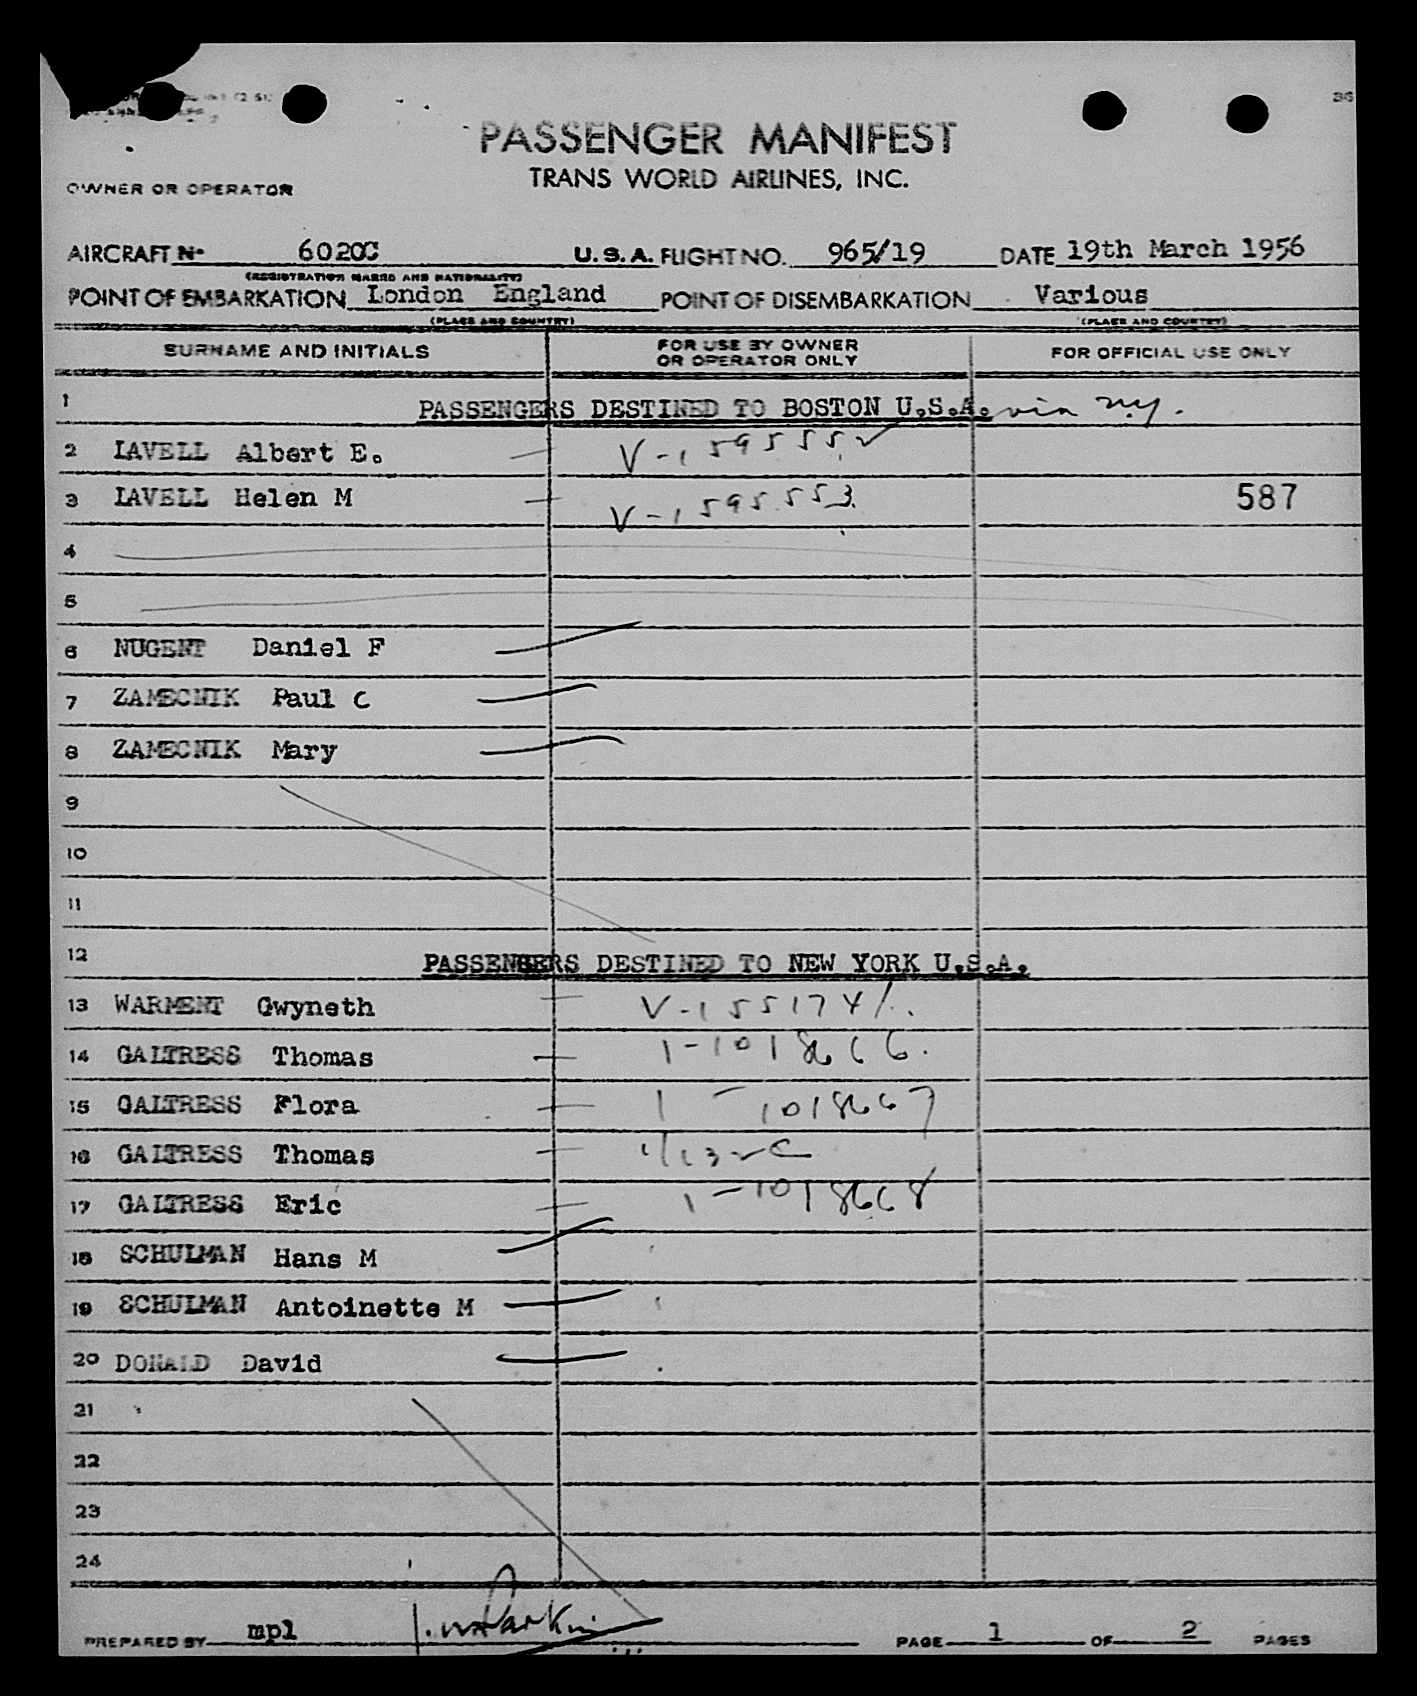 36
PASSENGER MANIFEST
TRANS WORLD AIRLINES, INC.
OWNER OR OPERATOR
AIRCRAFT No 6020C U.S.A. FLIGHT NO. 965/19 DATE 19th March 1956
(REGISTRATION MARKS AND NATIONALITY)
POINT OF EMBARKATION London England POINT OF DISEMBARKATION Various
(PLACE AND COUNTRY) (PLACE AND COUNTRY)
SURNAME AND INITIALS FOR USE BY OWNER OR OPERATOR ONLY FOR OFFICIAL USE ONLY
1 PASSENGERS DESTINED TO BOSTON U.S.A. via N.Y.
2 LAVELL Albert E. V-1595552
3 LAVELL Helen M V-1595553 587
4
5
6 NUGENT Daniel F
7 ZAMECNIK Paul C
8 ZAMECNIK Mary
9
10
11
12 PASSENGERS DESTINED TO NEW YORK U.S.A.
13 WARMENT Gwyneth V-1551741
14 GALTRESS Thomas 1-1018666
15 GALTRESS Flora 1-1018667
16 GALTRESS Thomas
17 GALTRESS Eric 1-1018668
18 SCHULMAN Hans M
19 SCHULMAN Antoinette M
20 DONALD David
21
22
23
24
PREPARED BY mpl PAGE 1 OF 2 PAGES